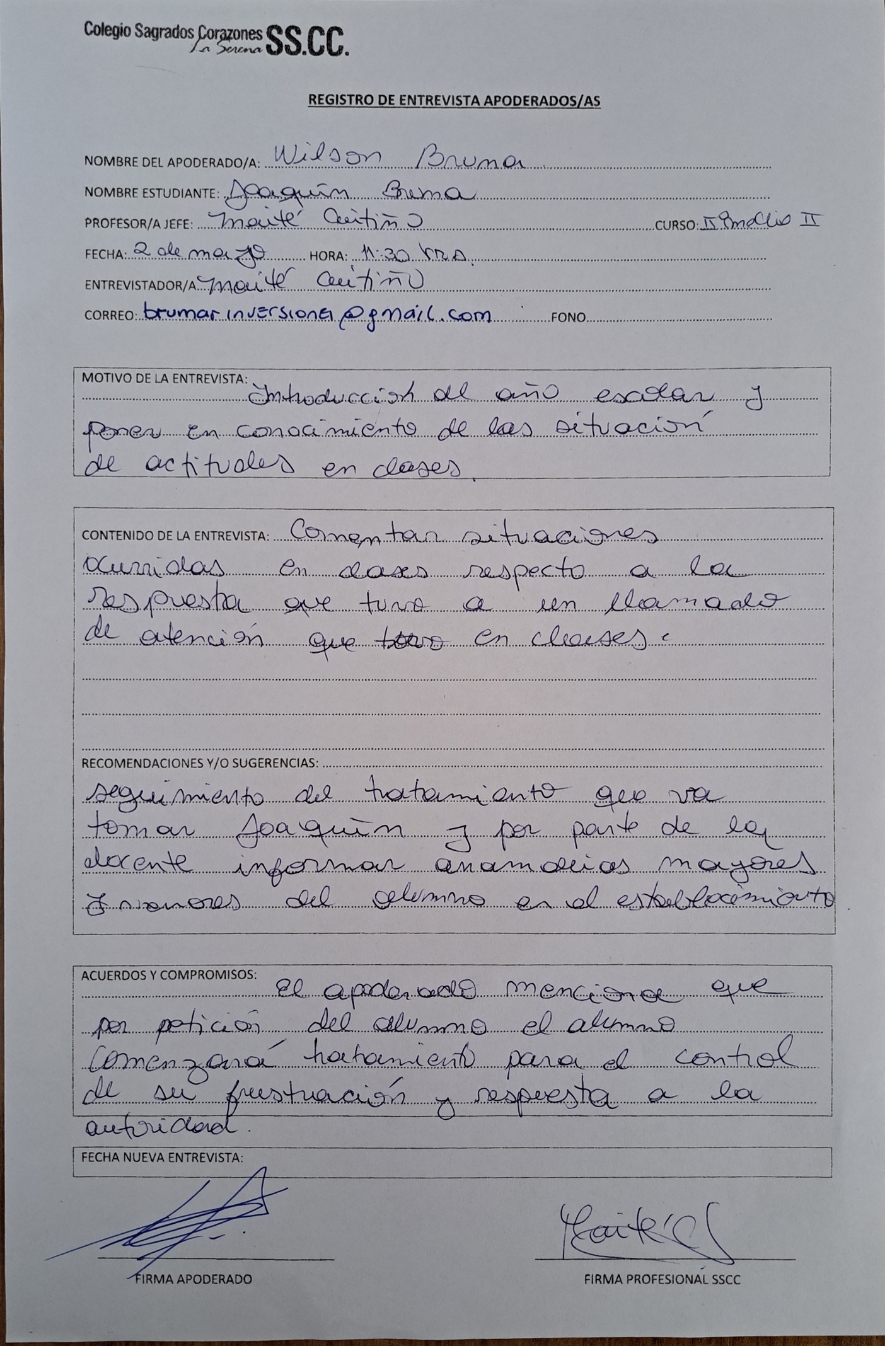 Colegio Sagrados Corazones SS.CC.
La Serena
REGISTRO DE ENTREVISTA APODERADOS/AS
NOMBRE DEL APODERADO/A: Wilson Bruma
NOMBRE ESTUDIANTE: Joaquín Bruma
PROFESOR/A JEFE: Maité Cuitiño CURSO: IIºmedio II
FECHA: 2 de marzo HORA: 11:30 hrs.
ENTREVISTADOR/A Maité Cuitiño
CORREO: brumar.inversiones@gmail.com FONO
MOTIVO DE LA ENTREVISTA:
Introducción del año escolar y
poner en conocimiento de las situación
de actituales en clases.
CONTENIDO DE LA ENTREVISTA: Comentar situaciones
ocurridas en clases respecto a la
respuesta que tuvo a un llamado
de atención que tuvo en clases.
RECOMENDACIONES Y/O SUGERENCIAS:
seguimiento del tratamiento que va
tomar Joaquín y por parte de la
docente informar anamolias mayores
y menores del alumno en el establecimiento
ACUERDOS Y COMPROMISOS:
El apoderado menciona que
por petición del alumno el alumno
comenzará tratamiento para el control
de su frustruación y respuesta a la
autoridad.
FECHA NUEVA ENTREVISTA:
Maité C
FIRMA APODERADO FIRMA PROFESIONAL SSCC